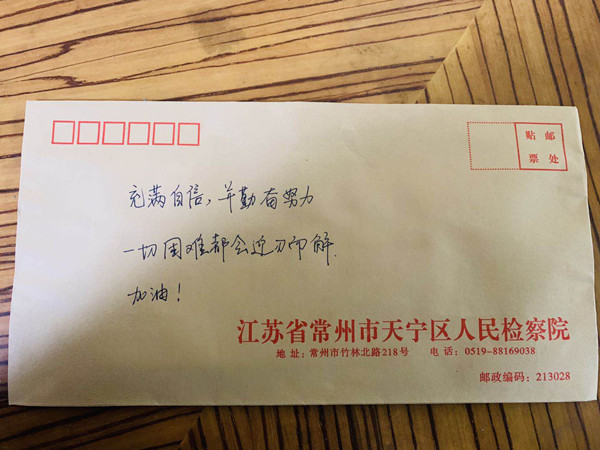 贴 邮
票 处
充满自信，并勤奋努力
一切困难都会迎刃而解.
加油！
江苏省常州市天宁区人民检察院
地 址：常州市竹林北路218号 电 话：0519-88169038
邮政编码：213028